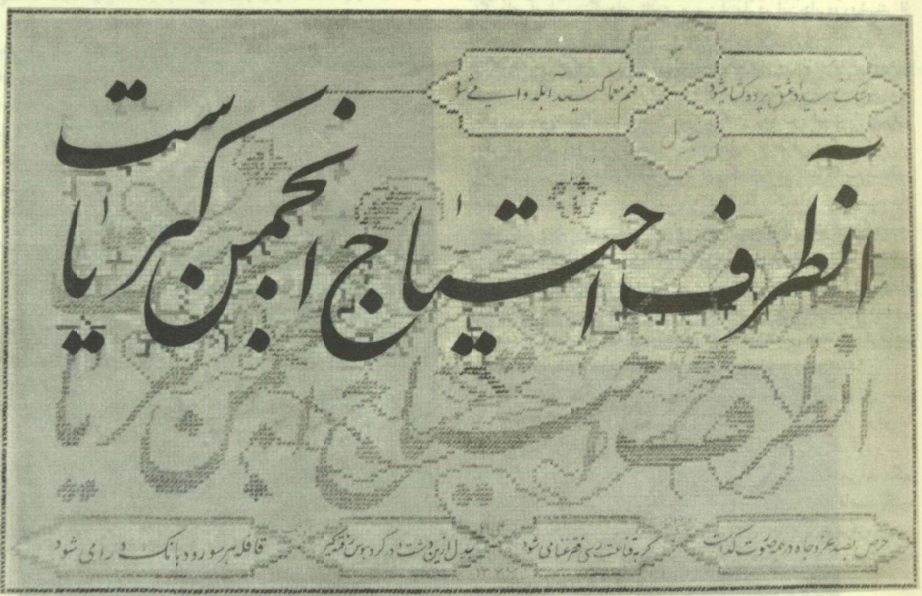 اشک ز بیداد عشق پرده گشا میشود
فهم معما کنید آبله وا می شود
بیدل
آنطرف احتیاج انجمن کبریاست
حرص بصد عز و جاه در همه صورت گداست
گر به قناعت رسی فقر غنا می شود
بیدل ازین دشت و در گرد هوس رفته گیر
قافله هر سو رود بانگ درا می شود